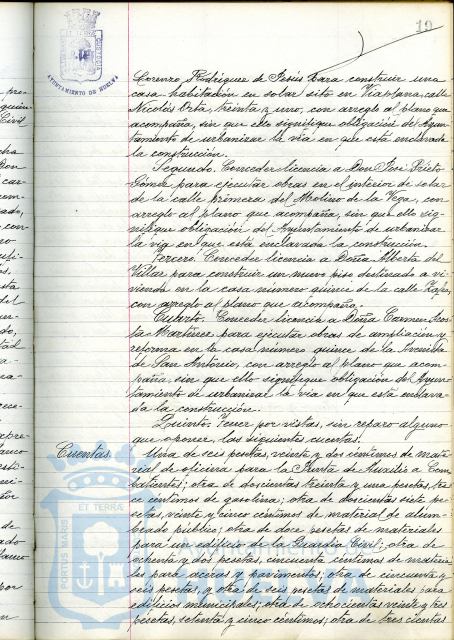 19
AYUNTAMIENTO DE HUELVA
Lorenzo Rodríguez de Jesús para construir una
casa habitación en solar sito en Viaplana, calle
Nicolás Orta treinta y uno, con arreglo al plano que
acompaña, sin que ello signifique obligación del Ayun-
tamiento de urbanizar la vía en que está enclavada
la construcción.
Segundo. Conceder licencia a Don José Prieto
Gómez para ejecutar obras en el interior de solar
de la calle primera del Molino de la Vega, con
arreglo al plano que acompaña, sin que ello sig-
nifique obligación del Ayuntamiento de urbanizar
la vía en que está enclavada la construcción.
Tercero. Conceder licencia a Doña Alberta del
Villar para construir un nuevo piso destinado a vi-
vienda en la casa número quince de la calle
con arreglo al plano que acompaña.
Cuarto. Conceder licencia a Doña Carmen
Martínez para ejecutar obras de ampliación y
reforma en la casa número quince de la Avenida
de San Antonio, con arreglo al plano que acom-
paña, sin que ello signifique obligación del Ayun-
tamiento de urbanizar la vía en que está enclava-
da la construcción.
Quinto. Tener por vistas, sin reparo alguno
que oponer, las siguientes cuentas.
Cuentas. Una de seis pesetas, veinte y dos céntimos de mate-
rial de oficina para la Junta de Auxilio a Com-
batientes; otra de doscientas treinta y una pesetas, tre-
ce céntimos de gasolina; otra de doscientas siete pe-
setas, veinte y cinco céntimos de material de alum-
brado público; otra de doce pesetas de materiales
para un edificio de la Guardia Civil; otra de
ochenta y dos pesetas, cincuenta céntimos de materia-
les para aceras y pavimentos; otra de cincuenta y
seis pesetas, y otra de seis pesetas de materiales para
edificios municipales; otra de ochocientas veinte y tres
pesetas, setenta y cinco céntimos; otra de trescientas
PORTUS MARIS ET TERRAE
Ayuntamiento de